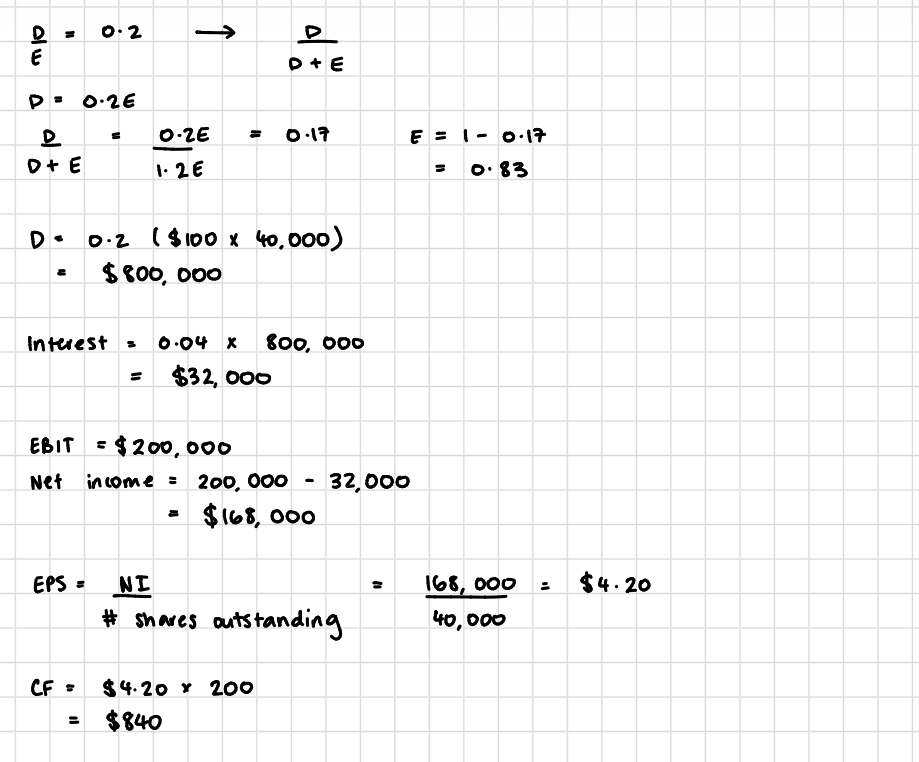 D/E = 0.2 → D/(D + E)
D = 0.2E
D/(D + E) = 0.2E/1.2E = 0.17 E = 1 - 0.17
= 0.83
D = 0.2 ($100 x 40,000)
= $800,000
Interest = 0.04 x 800,000
= $32,000
EBIT = $200,000
Net income = 200,000 - 32,000
= $168,000
EPS = NI/# shares outstanding = 168,000/40,000 = $4.20
CF = $4.20 x 200
= $840